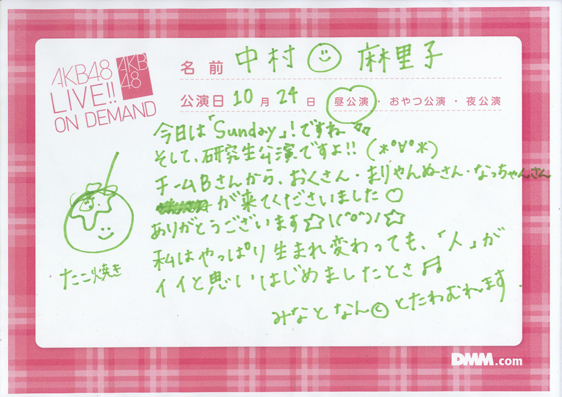 AKB48
LIVE!!
ON DEMAND
AKB
48
名前 中村 麻里子
公演日 10月24日 昼公演・おやつ公演・夜公演
今日は「Sunday」!ですね
そして、研究生公演ですよ!!(*°∀°*)
チームBさんから、おくさん・まりやんぬさん・なっちゃんさん
が来てくださいました♡
ありがとうございます☆\(^o^)/☆
私はやっぱり生まれ変わっても、「人」が
イイと思いはじめましたとさ♬
みなとなん©とたわむれます
たこ焼き
DMM.com